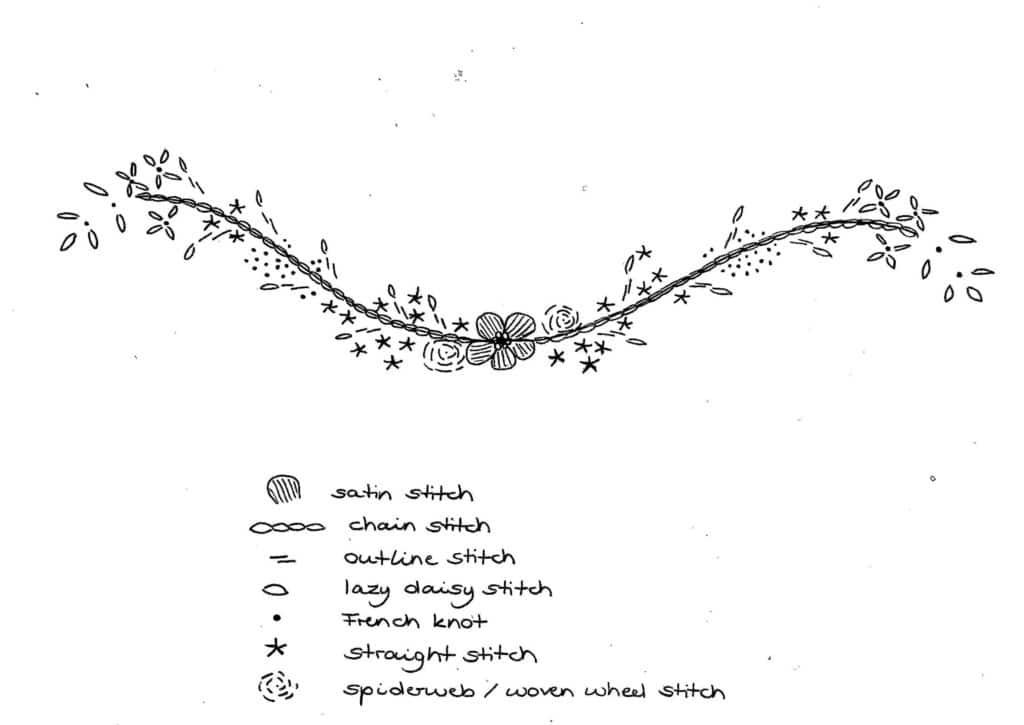 satin stitch
chain stitch
outline stitch
lazy daisy stitch
French knot
straight stitch
spiderweb / woven wheel stitch